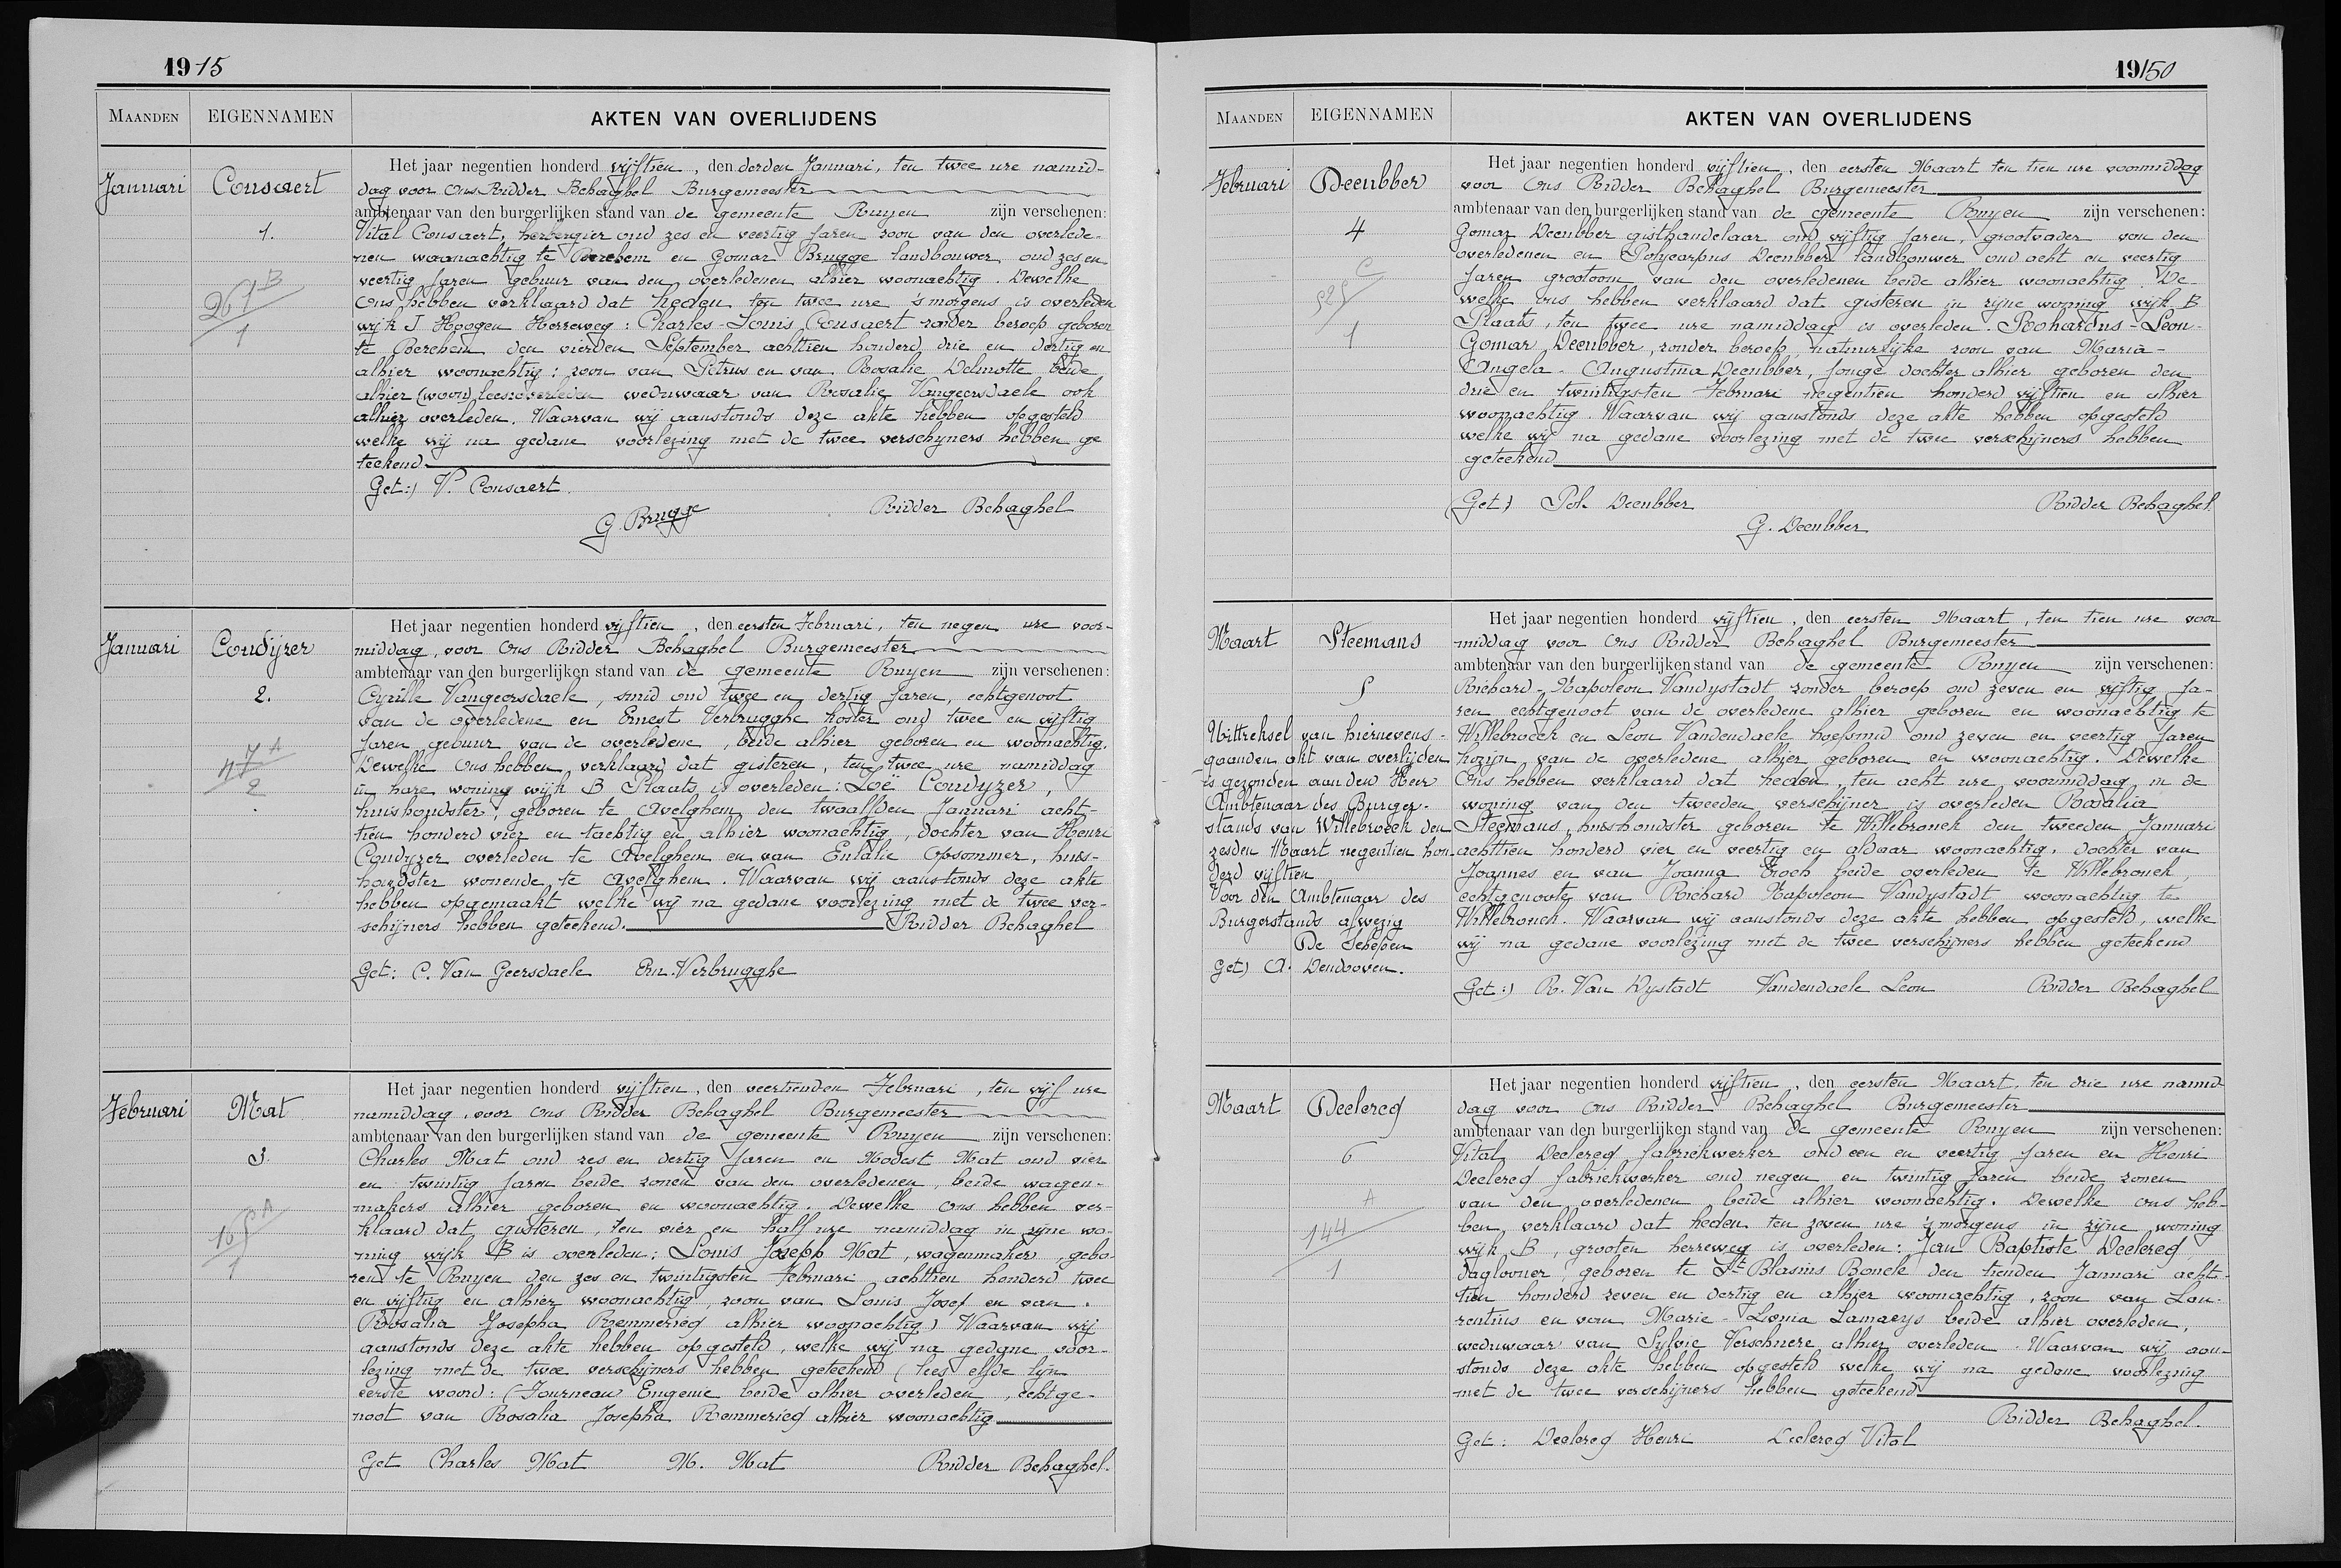 1915
MAANDEN EIGENNAMEN AKTEN VAN OVERLIJDENS
Januari
Cousaert
1.
267 B
1
Het jaar negentien honderd vijftien, den derden Januari, ten twee ure namid-
dag voor Ons Ridder Behaghel Burgemeester
ambtenaar van den burgerlijken stand van de gemeente Ruyen zijn verschenen:
Vital Cousaert, herbergier oud zes en veertig jaren zoon van den overlede-
nen woonachtig te Berchem en Gomar Brugge landbouwer oud zes en
veertig jaren gebuur van den overledenen alhier woonachtig. Dewelke
Ons hebben verklaard dat heden ten twee ure 's morgens is overleden
wijk J Hoogen Herreweg: Charles-Louis Cousaert zonder beroep geboren
te Berchem den vierden September achttien honderd drie en dertig en
alhier woonachtig: zoon van Petrus en van Rosalie Delmotte beide
alhier (woon) lees: overleden weduwaar van Rosalie Vangeersdaele ook
alhier overleden. Waarvan wij aanstonds deze akte hebben opgesteld
welke wij na gedane voorlezing met de twee verschijners hebben ge
teekend
Get:) V. Cousaert.
G. Brugge Ridder Behaghel
Januari
Coudijzer
2.
47 A
2
Het jaar negentien honderd vijftien, den eersten Februari, ten negen ure voor-
middag, voor Ons Ridder Behaghel Burgemeester
ambtenaar van den burgerlijken stand van de gemeente Ruyen zijn verschenen:
Cyrille Vangeersdaele, smid oud twee en dertig jaren, echtgenoot
van de overledene en Ernest Verbrugghe koster oud twee en vijftig
jaren gebuur van de overledene, beide alhier geboren en woonachtig.
Dewelke Ons hebben verklaard dat gisteren, ten twee ure namiddag
in hare woning wijk B Plaats is overleden: Zoë Coudyzer,
huishoudster, geboren te Avelghem den twaalfden Januari acht-
tien honderd vier en tachtig en alhier woonachtig, dochter van Henri
Coudyzer overleden te Avelghem en van Eulalie Opsommer, huis-
houdster wonende te Avelghem. Waarvan wij aanstonds deze akte
hebben opgemaakt welke wij na gedane voorlezing met de twee ver-
schijners hebben geteekend. Ridder Behaghel
Get: C. Van Geersdaele Ern. Verbrugghe
Februari
Mat
3.
165 A
1
Het jaar negentien honderd vijftien, den veertienden Februari, ten vijf ure
namiddag, voor Ons Ridder Behaghel Burgemeester
ambtenaar van den burgerlijken stand van de gemeente Ruyen zijn verschenen:
Charles Mat oud zes en dertig jaren en Modest Mat oud vier
en twintig jaren beide zonen van den overledenen, beide wagen-
makers alhier geboren en woonachtig. Dewelke Ons hebben ver-
klaard dat gisteren, ten vier en half ure namiddag in zijne wo-
ning wijk B is overleden: Louis Joseph Mat, wagenmaker, gebo-
ren te Ruyen den zes en twintigsten Februari achttien honderd twee
en vijftig en alhier woonachtig, zoon van Louis Josef en van.
Rosalia Josepha Remmerieq alhier woonachtig) Waarvan wij
aanstonds deze akte hebben opgesteld, welke wij na gedane voor-
lezing met de twee verschijners hebben geteekend (lees elfde lijn
eerste woord: (Fourneau Eugenie beide alhier overleden, echtge-
noot van Rosalia Josepha Remmerieq alhier woonachtig
Get Charles Mat M. Mat Ridder Behaghel.
19150
MAANDEN EIGENNAMEN AKTEN VAN OVERLIJDENS
Februari
Deeubber
4
C
525
1
Het jaar negentien honderd vijftien, den eersten Maart ten tien ure voormiddag
voor Ons Ridder Behaghel Burgemeester
ambtenaar van den burgerlijken stand van de gemeente Ruyen zijn verschenen:
Gomar Deeubber gisthandelaar oud vijftig jaren, grootvader van den
overledenen en Polycarpus Deeubber landbouwer oud acht en veertig
jaren grootoom van den overledenen beide alhier woonachtig. De-
welke Ons hebben verklaard dat gisteren in zijne woning wijk B
Plaats, ten twee ure namiddag is overleden. Rohardus-Leon-
Gomar Deeubber, zonder beroep, natuurlijke zoon van Maria-
Angela-Augustina Deeubber, jonge dochter alhier geboren den
drie en twintigsten Februari negentien honderd vijftien en alhier
woonachtig. Waarvan wij aanstonds deze akte hebben opgesteld
welke wij na gedane voorlezing met de twee verschijners hebben
geteekend
Get) Pol. Deeubber Ridder Behaghel.
G. Deeubber
Maart
Steemans
5
Uittreksel van hiernevens-
gaanden akt van overlijden
is gezonden aan den Heer
Ambtenaar des Burger-
stands van Willebroeck den
zesden Maart negentien hon-
derd vijftien
Voor den Ambtenaar des
Burgerstands afwezig
De Schepen
Get) A. Dendooven.
Het jaar negentien honderd vijftien, den eersten Maart, ten tien ure voor
middag voor Ons Ridder Behaghel Burgemeester
ambtenaar van den burgerlijken stand van de gemeente Ruyen zijn verschenen:
Richard-Napoleon Vandystadt zonder beroep oud zeven en vijftig ja-
ren echtgenoot van de overledene alhier geboren en woonachtig te
Willebroeck en Leon Vandendaele hoefsmid oud zeven en veertig jaren
kozijn van de overledene alhier geboren en woonachtig. Dewelke
Ons hebben verklaard dat heden ten acht ure voormiddag in de
woning van den tweeden verschijner is overleden Rosalia
Steemans, huishoudster geboren te Willebroeck den tweeden Januari
achttien honderd vier en veertig en aldaar woonachtig, dochter van
Joannes en van Joanna Troch beide overleden te Willebroeck,
echtgenoote van Richard Napoleon Vandystadt woonachtig te
Willebroeck. Waarvan wij aanstonds deze akte hebben opgesteld, welke
wij na gedane voorlezing met de twee verschijners hebben geteekend
Get:) R. Van Dystadt Vandendaele Leon Ridder Behaghel
Maart
Declercq
6
A
144
1
Het jaar negentien honderd vijftien, den eersten Maart, ten drie ure namid-
dag voor Ons Ridder Behaghel Burgemeester
ambtenaar van den burgerlijken stand van de gemeente Ruyen zijn verschenen:
Vital Declercq fabriekwerker oud een en veertig jaren en Henri
Declercq fabriekwerker oud negen en twintig jaren beide zonen
van den overledenen beide alhier woonachtig. Dewelke ons heb-
ben verklaard dat heden ten zeven ure 's morgens in zijne woning
wijk B, grooten herreweg is overleden: Jan Baptiste Declercq
daglooner, geboren te St Blasius Boucle den tienden Januari acht-
tien honderd zeven en dertig en alhier woonachtig, zoon van Lau-
rentius en van Marie-Livonia Lamaeys beide alhier overleden,
weduwaar van Sylvie Verschuere alhier overleden. Waarvan wij aan-
stonds deze akte hebben opgesteld welke wij na gedane voorlezing
met de twee verschijners hebben geteekend
Ridder Behaghel.
Get: Declercq Henri Declercq Vital